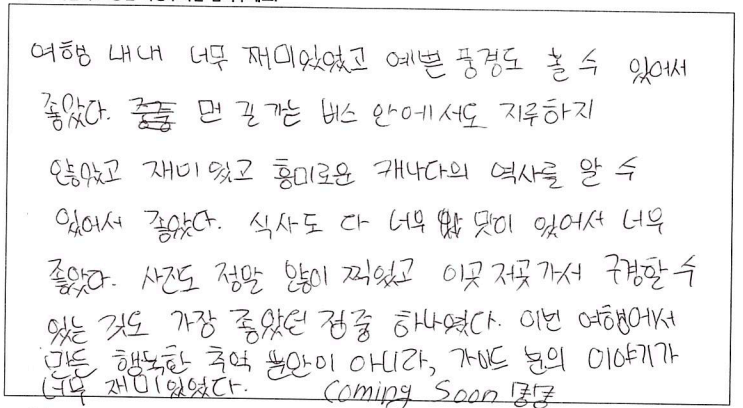 여행 내내 너무 재미있었고 예쁜 풍경도 볼 수 있어서
좋았다. 먼 길 가는 버스 안에서도 지루하지
않았고 재미있고 흥미로운 캐나다의 역사를 알 수
있어서 좋았다. 식사도 다 너무 맛이 있어서 너무
좋았다. 사진도 정말 많이 찍었고 이곳 저곳 가서 구경할 수
있는 것도 가장 좋았던 점중 하나였다. 이번 여행에서
만든 행복한 추억 뿐만이 아니라, 가이드 분의 이야기가
너무 재미있었다. Coming Soon